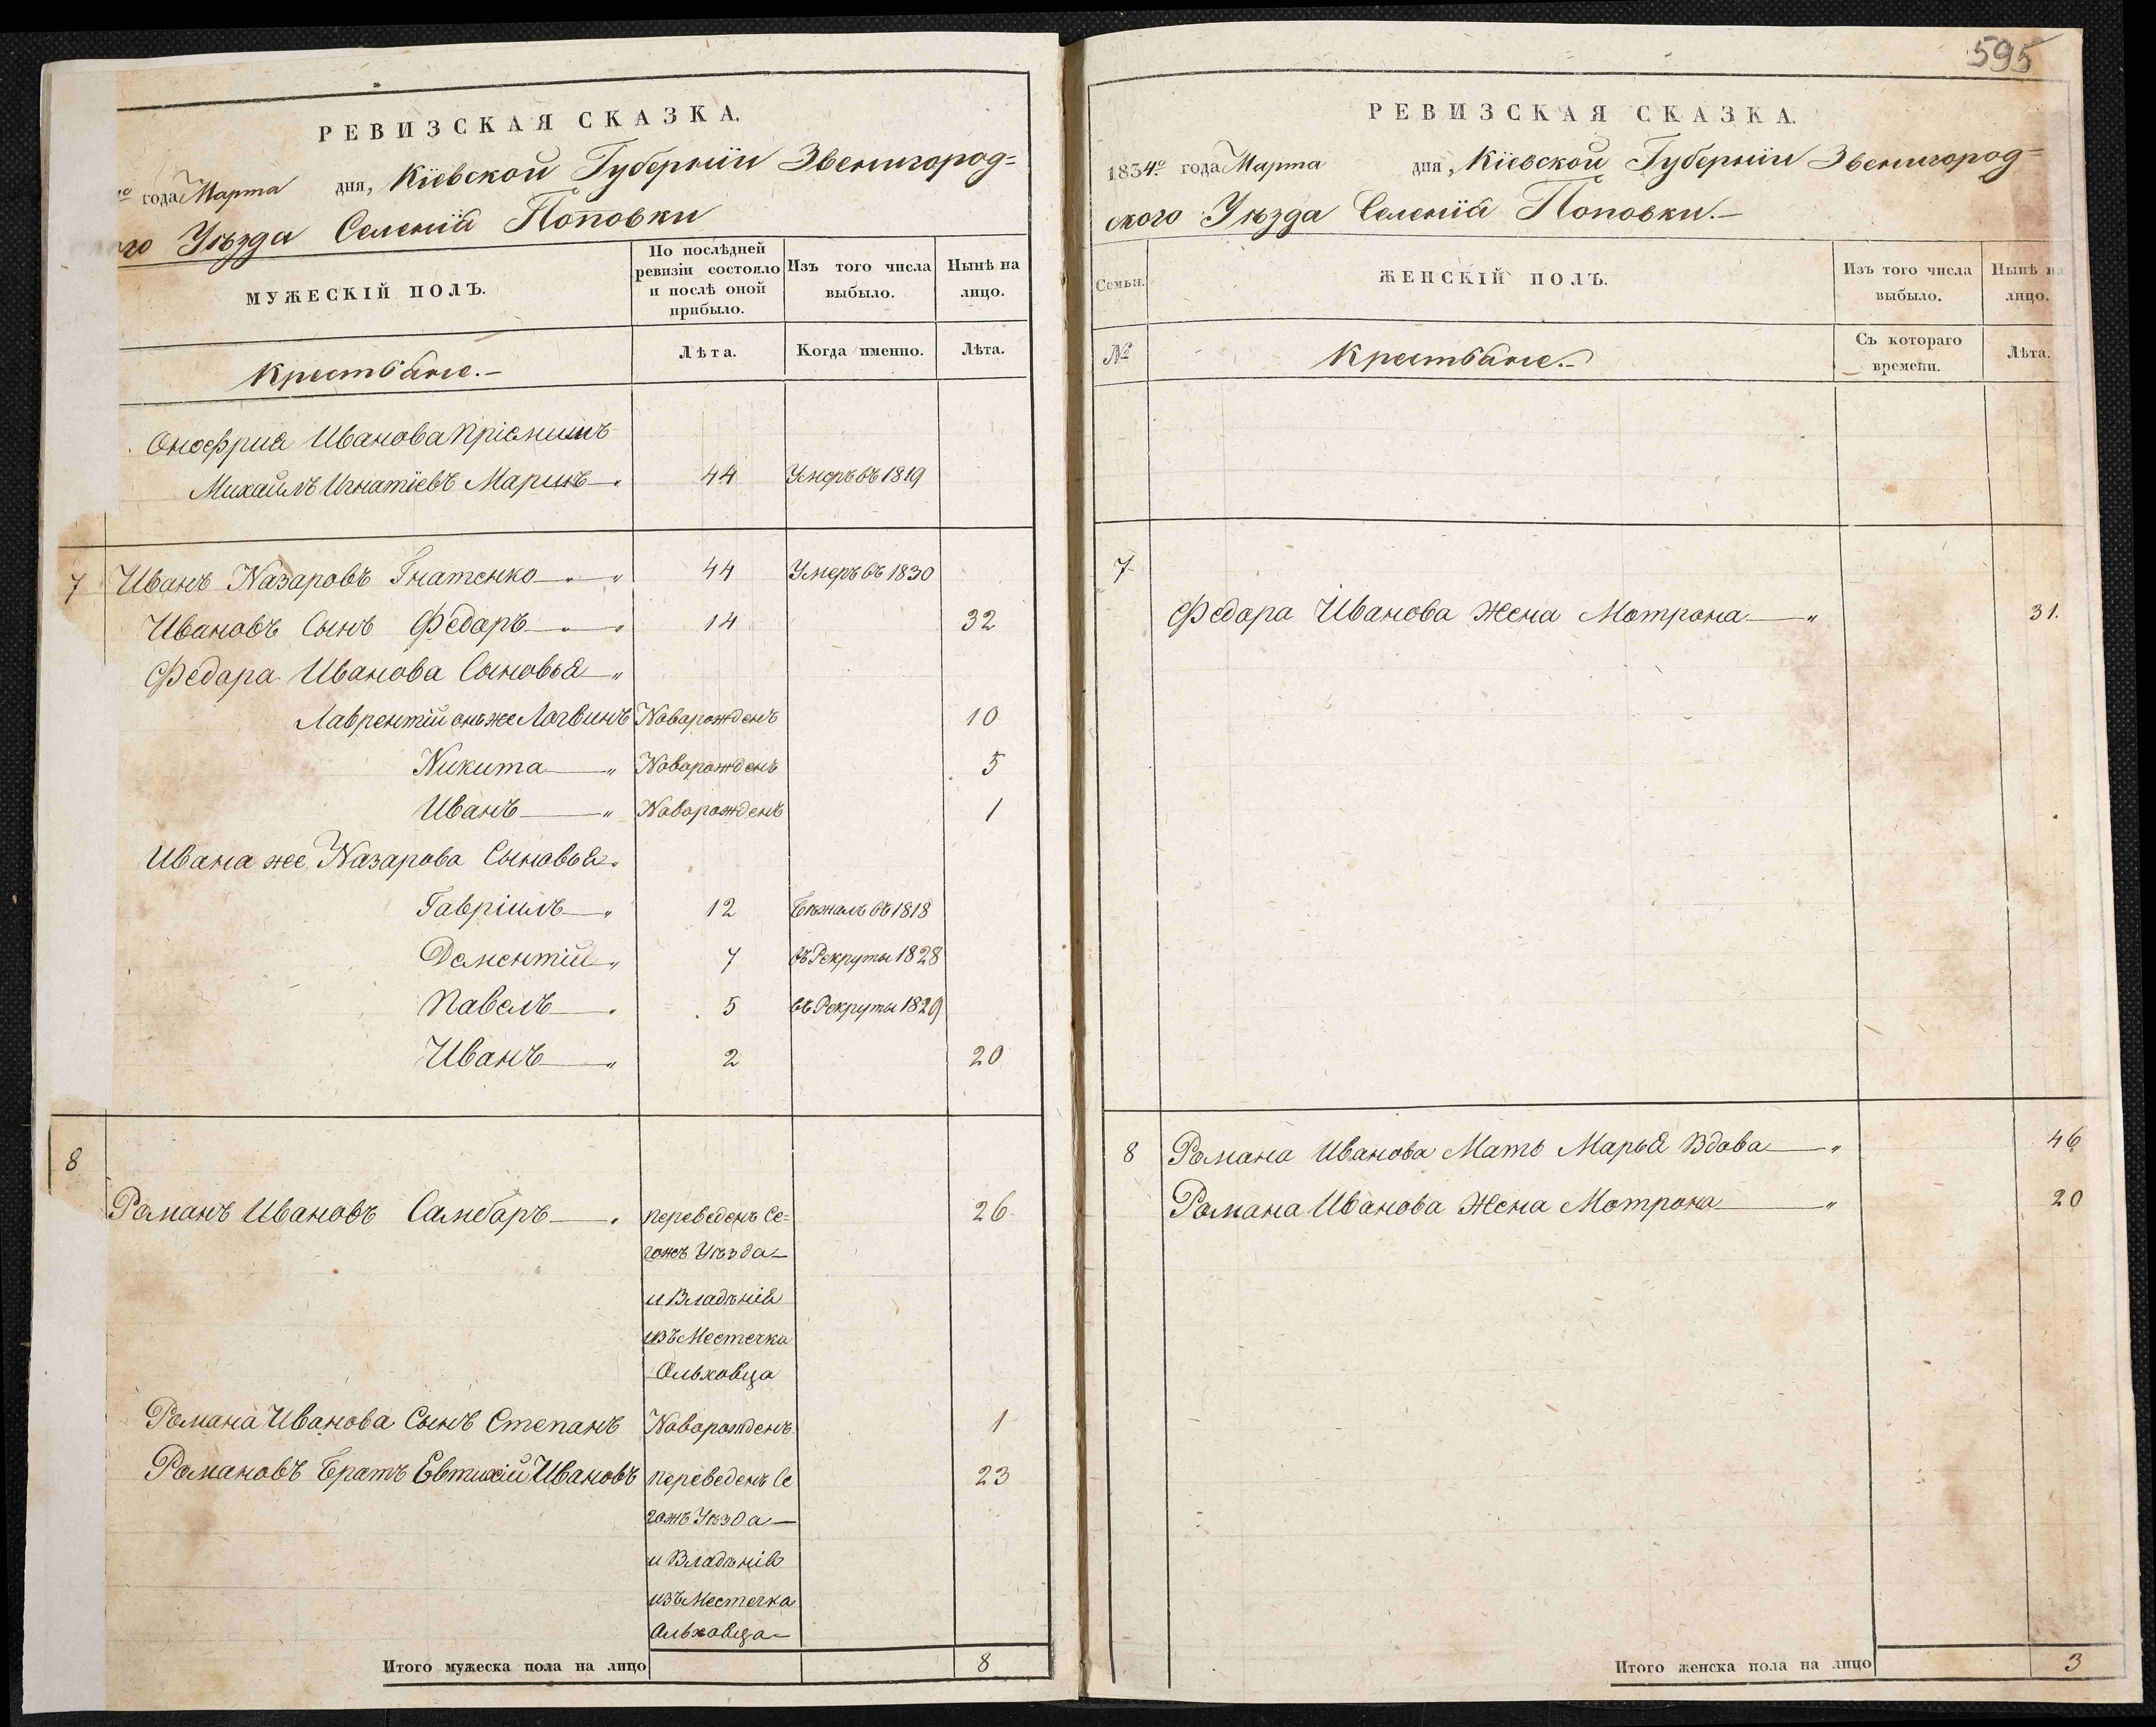 РЕВИЗСКАЯ СКАЗКА.
года Марта дня, Кіевской Губерніи Звенигород=
Уѣзда Селенія Поповки
МУЖЕСКІЙ ПОЛЪ.
По послѣдней ревизіи состояло и послѣ оной прибыло.
Изъ того числа выбыло.
Нынѣ на лицо.
Крестьяне.-
Лѣта.
Когда именно.
Лѣта.
Онофрия Иванова Пріемышъ
Михайлъ Игнатіевъ 44 Умеръ въ 1819
7 Иванъ Назаровъ Гнатенко 44 Умеръ въ 1830
Ивановъ Сынъ Федаръ 14 32
Федара Иванова Сыновья
Лаврентій онъ же Логвинъ Наворожденъ 10
Никита Наворожденъ 5
Иванъ Наворожденъ 1
Ивана же Назарова Сыновья
Гавріилъ 12 Бѣжалъ въ 1818
Дементій 7 въ Рекруты 1828
Павелъ 5 въ Рекруты 1829
Иванъ 2 20
8
Романъ Ивановъ Самбаръ переведенъ Се= 26
гожъ Уѣзда
и Владѣнія
изъ Местечка
Ольховца
Романа Иванова Сынъ Степанъ Наворожденъ 1
Романовъ Братъ Евтихій Ивановъ переведенъ Се 23
гожъ Уѣзда
и Владѣнія
изъ Местечка
Ольховца
Итого мужеска пола на лицо 8
595
РЕВИЗСКАЯ СКАЗКА.
1834го года Марта дня, Кіевской Губерніи Звенигород=
ского Уѣзда Селенія Поповки.-
Семьи.
ЖЕНСКІЙ ПОЛЪ.
Изъ того числа выбыло.
Нынѣ на лицо.
№
Крестьяне.-
Съ котораго времени.
Лѣта.
7
Федара Иванова Жена Мотрона 31.
8 Романа Иванова Мать Марья Вдова 46
Романа Иванова Жена Мотрона 20
Итого женска пола на лицо 3